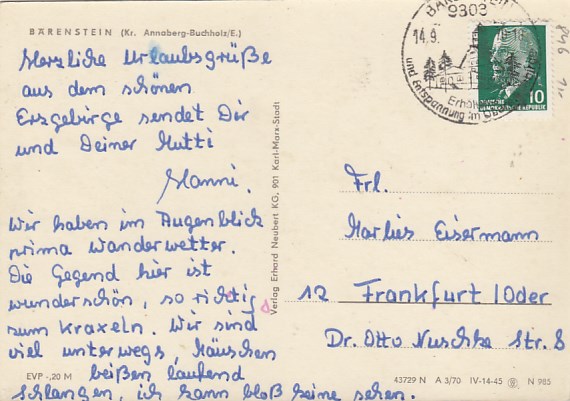 BÄRENSTEIN (Kr. Annaberg-Buchholz/E.)
Herzliche Urlaubsgrüße
aus dem schönen
Erzgebirge sendet Dir
und Deiner Mutti
Hanni.
Wir haben im Augenblick
prima Wanderwetter.
Die Gegend hier ist
wunderschön, so richtig
zum Kraxeln. Wir sind
viel unterwegs, Häuschen
beißen laufend
Schlangen, ich kann bloß keine sehen.
EVP -,20 M
Verlag Erhard Neubert KG, 901 Karl-Marx-Stadt
9303
14.9.
und Entspannung im
DEUTSCHE
DEMOKRATISCHE REPUBLIK
10
Frl.
Marlies Eisermann
12 Frankfurt /Oder
Dr. Otto Nuschke Str. 8
43729 N A 3/70 IV-14-45 N 985